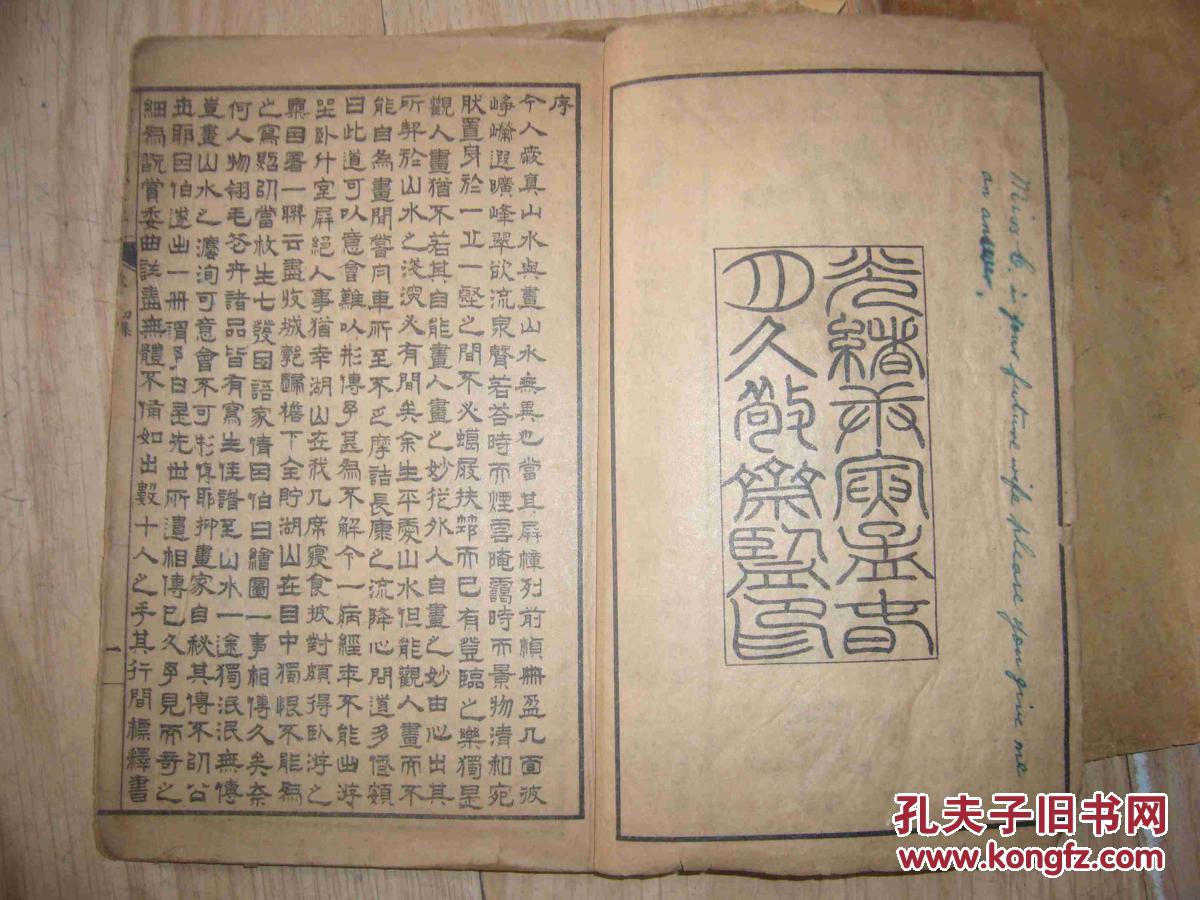 光緒庚寅孟春
月久敬齋監印
Miss C. is your future wife please you give me
an answer.
序
今人愛真山水與畫山水無異也當其屏幛列前幀冊盈几面彼
崢嶸遐曠峰翠欲流泉聲若答時而煙雲晻靄時而景物清和宛
然置身於一丘一壑之間不必蠟屐扶筇而已有登臨之樂獨是
觀人畫猶不若其自能畫人畫之妙從外入自畫之妙由心出其
所契於山水之淺深必有間矣余生平愛山水但能觀人畫而不
能自為畫間嘗舟車所至不乏摩詰長康之流降心問道多蹙頞
曰此道可以意會難以形傳予甚為不解今一病經年不能出游
坐臥斗室屏絕人事猶幸湖山在我几席寢食披對頗得臥游之
樂因署一聯云盡收城郭歸檐下全貯湖山在目中獨恨不能為
之寫照以當枚生七發因語家倩因伯曰繪圖一事相傳久矣奈
何人物翎毛花卉諸品皆有寫生佳譜至山水一途獨泯泯無傳
豈畫山水之法洵可意會不可形傳耶抑畫家自秘其傳不以公
世耶因伯遂出一冊謂予曰是先世所遺相傳已久予見而奇之
細為玩賞委曲詳盡無體不備如出數十人之手其行間標釋書
一
孔夫子旧书网
www.kongfz.com